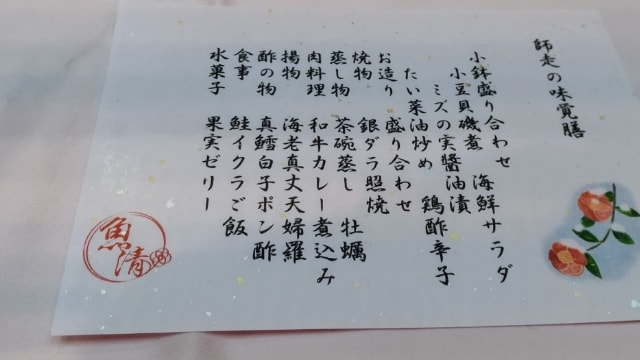 師走の味覚膳
小鉢盛り合わせ 海鮮サラダ
小豆貝磯煮
ミズの実醤油漬
たい菜油炒め 鶏酢辛子
お造り 盛り合わせ
焼物 銀ダラ照焼
蒸し物 茶碗蒸し 牡蠣
肉料理 和牛カレー煮込み
揚物 海老真丈天婦羅
酢の物 真鱈白子ポン酢
食事 鮭イクラご飯
水菓子 果実ゼリー
魚清